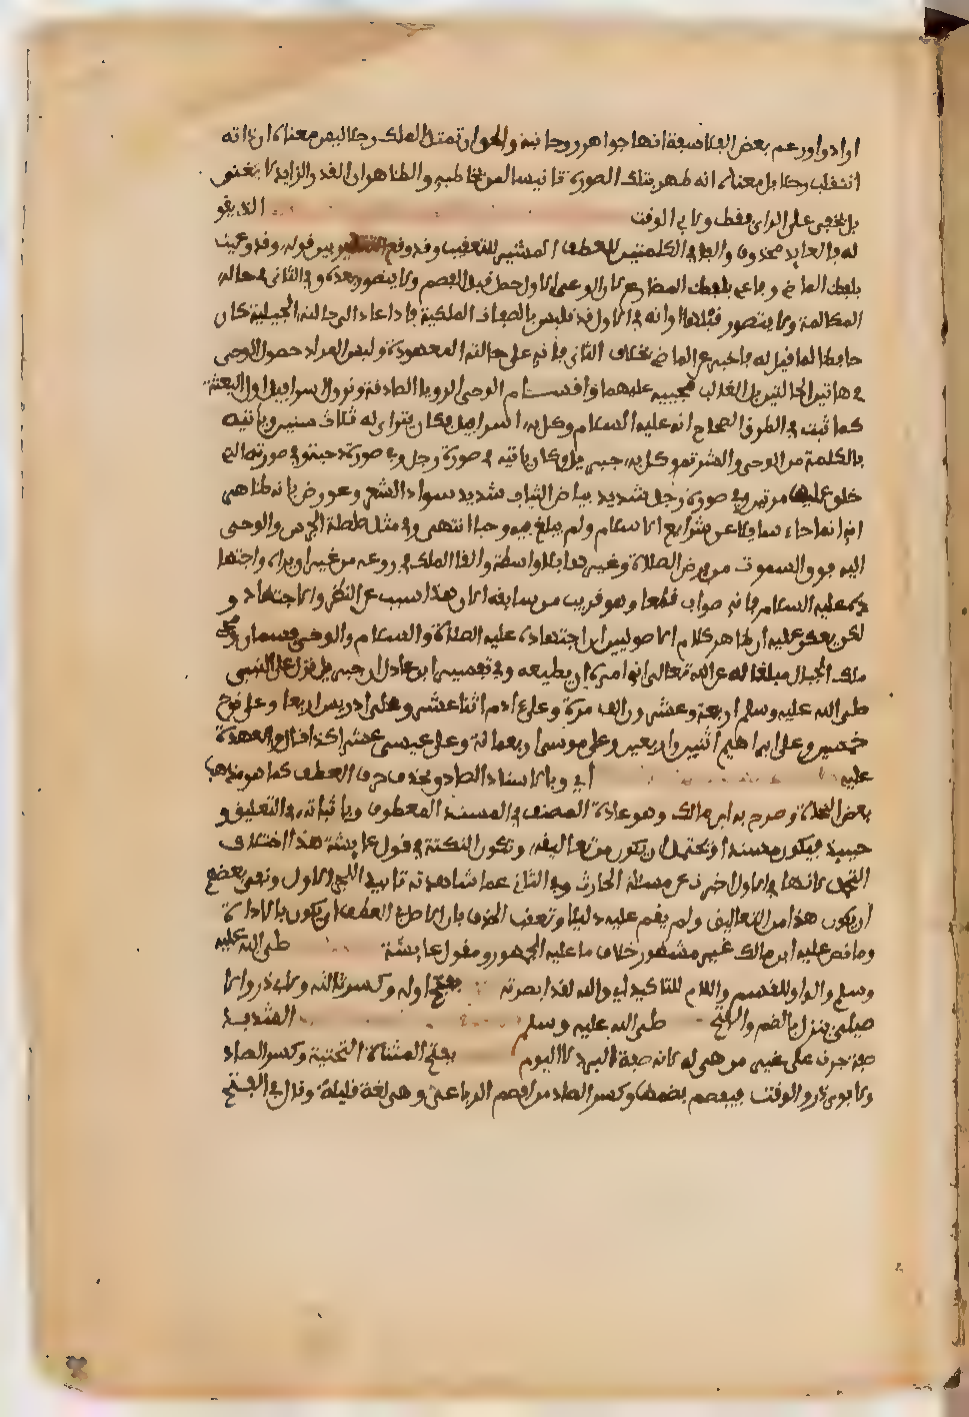 ارادوا وزعم بعض الفلاسفة انها جواهر روحانية والحق ان تمثل الملك رجلا ليس معناه ان ذاته
انقلبت رجلا بل معناه انه ظهر بتلك الصورة تانيسا لمن يخاطبه والظاهر ان القدر الزايد لا يفنى
بل يخفى على الراى فقط ولابى الوقت الذى يقو
له فالعايد محذوف والفا فى الكلمتين للعطف المشير للتعقيب وقد وقع التغاير بين قوله وقد وعيت
بلفظ الماضى وفاعى بلفظ المضارع لان الوعى فى الاول حصل قبل الفصم ولا يتصور بعده وفى الثانى فى حاله
المكالمة ولا يتصور قبلها او انه فى الاول قد تلبس بالصفات الملكية فاذا عاد الى حالته الجبلية كان
حافظا لما قيل له فاخبر عن الماضى بخلاف الثانى فانه على حالته المعهودة وليس المراد حصول الوحى
فى هاتين الحالتين بل الغالب مجيئه عليهما واقسام الوحى الرويا الصادقة ونزول اسرافيل اول البعثة
كما ثبت فى الطرق الصحاح انه عليه السلام وكل به اسرافيل فكان يتراى له ثلاث سنين وياتيه
بالكلمة من الوحى والشئ ثم وكل به جبريل وكان ياتيه فى صورة رجل وفى صورة دحية وفى صورته التى
خلق عليها مرتين وفى صورة رجل شديد بياض الثياب شديد سواد الشعر وعورض بانه ظاهر
انه انما جاء سايلا عن شرايع الاسلام ولم يبلغ فيه وحيا انتهى وفى مثل صلصلة الجرس والوحى
اليه فوق السموت من فرض الصلاة وغيرها بلا واسطة والقا الملك فى روعه من غير ان يراه واجتها
ده عليه السلام فانه صواب قطعا وهو قريب من سابقه الا ان هذا سبب عن النظر والاجتهاد و
لكن يعكر عليه ان ظاهر كلام الاصوليين ان اجتهاده عليه الصلاة والسلام والوحى قسمان ومجى
ملك الجبال مبلغا له عن الله تعالى انه امره ان يطيعه وفى تفسير ابن عادل ان جبريل نزل على النبى
صلى الله عليه وسلم اربعة وعشرين الف مرة وعلى ءادم اثنا عشر وعلى ادريس اربعا وعلى نوح
خمسين وعلى ابراهيم اثنين واربعين وعلى موسى اربعمائة وعلى عيسى عشرا كذا قال والعهدة
عليه اى وبالاسناد الصادر بحذف حرف العطف كما هو مذهب
بعض النحاة وصرح به ابن مالك وهو عادة المصنف فى المسند المعطوف وباثباته فى التعليق و
حينيذ فيكون مسندا ويحتمل ان يكون من تعاليقه وتكون النكتة فى قول عايشة هذا اختلاف
التحمل لانها فى الاول اخبرت عن مسئلة الحارث وفى الثانى عما شاهدته تاييدا للخبر الاول ونفى بعضهم
ان يكون هذا من التعاليق ولم يقم عليه دليلا وتعقب الحذف بان الاصل فى العطف ان يكون بالاداة
وما نص عليه ابن مالك غير مشهور خلاف ما عليه الجمهور ومقول عايشة صلى الله عليه
وسلم والواو للقسم واللام للتاكيد اى والله لقد ابصرته بفتح اوله وكسر ثالثه ولابى ذر والا
صيلى ينزل بالضم والفتح صلى الله عليه وسلم الشديد
صفة جرت على غير من هى له لانه صفة البرد لا اليوم بفتح المثناة التحتية وكسر الصاد
ولابوى ذر والوقت فيفصم بضمها وكسر الصاد من افصم الرباعى وهى لغة قليلة وقال فى الفتح